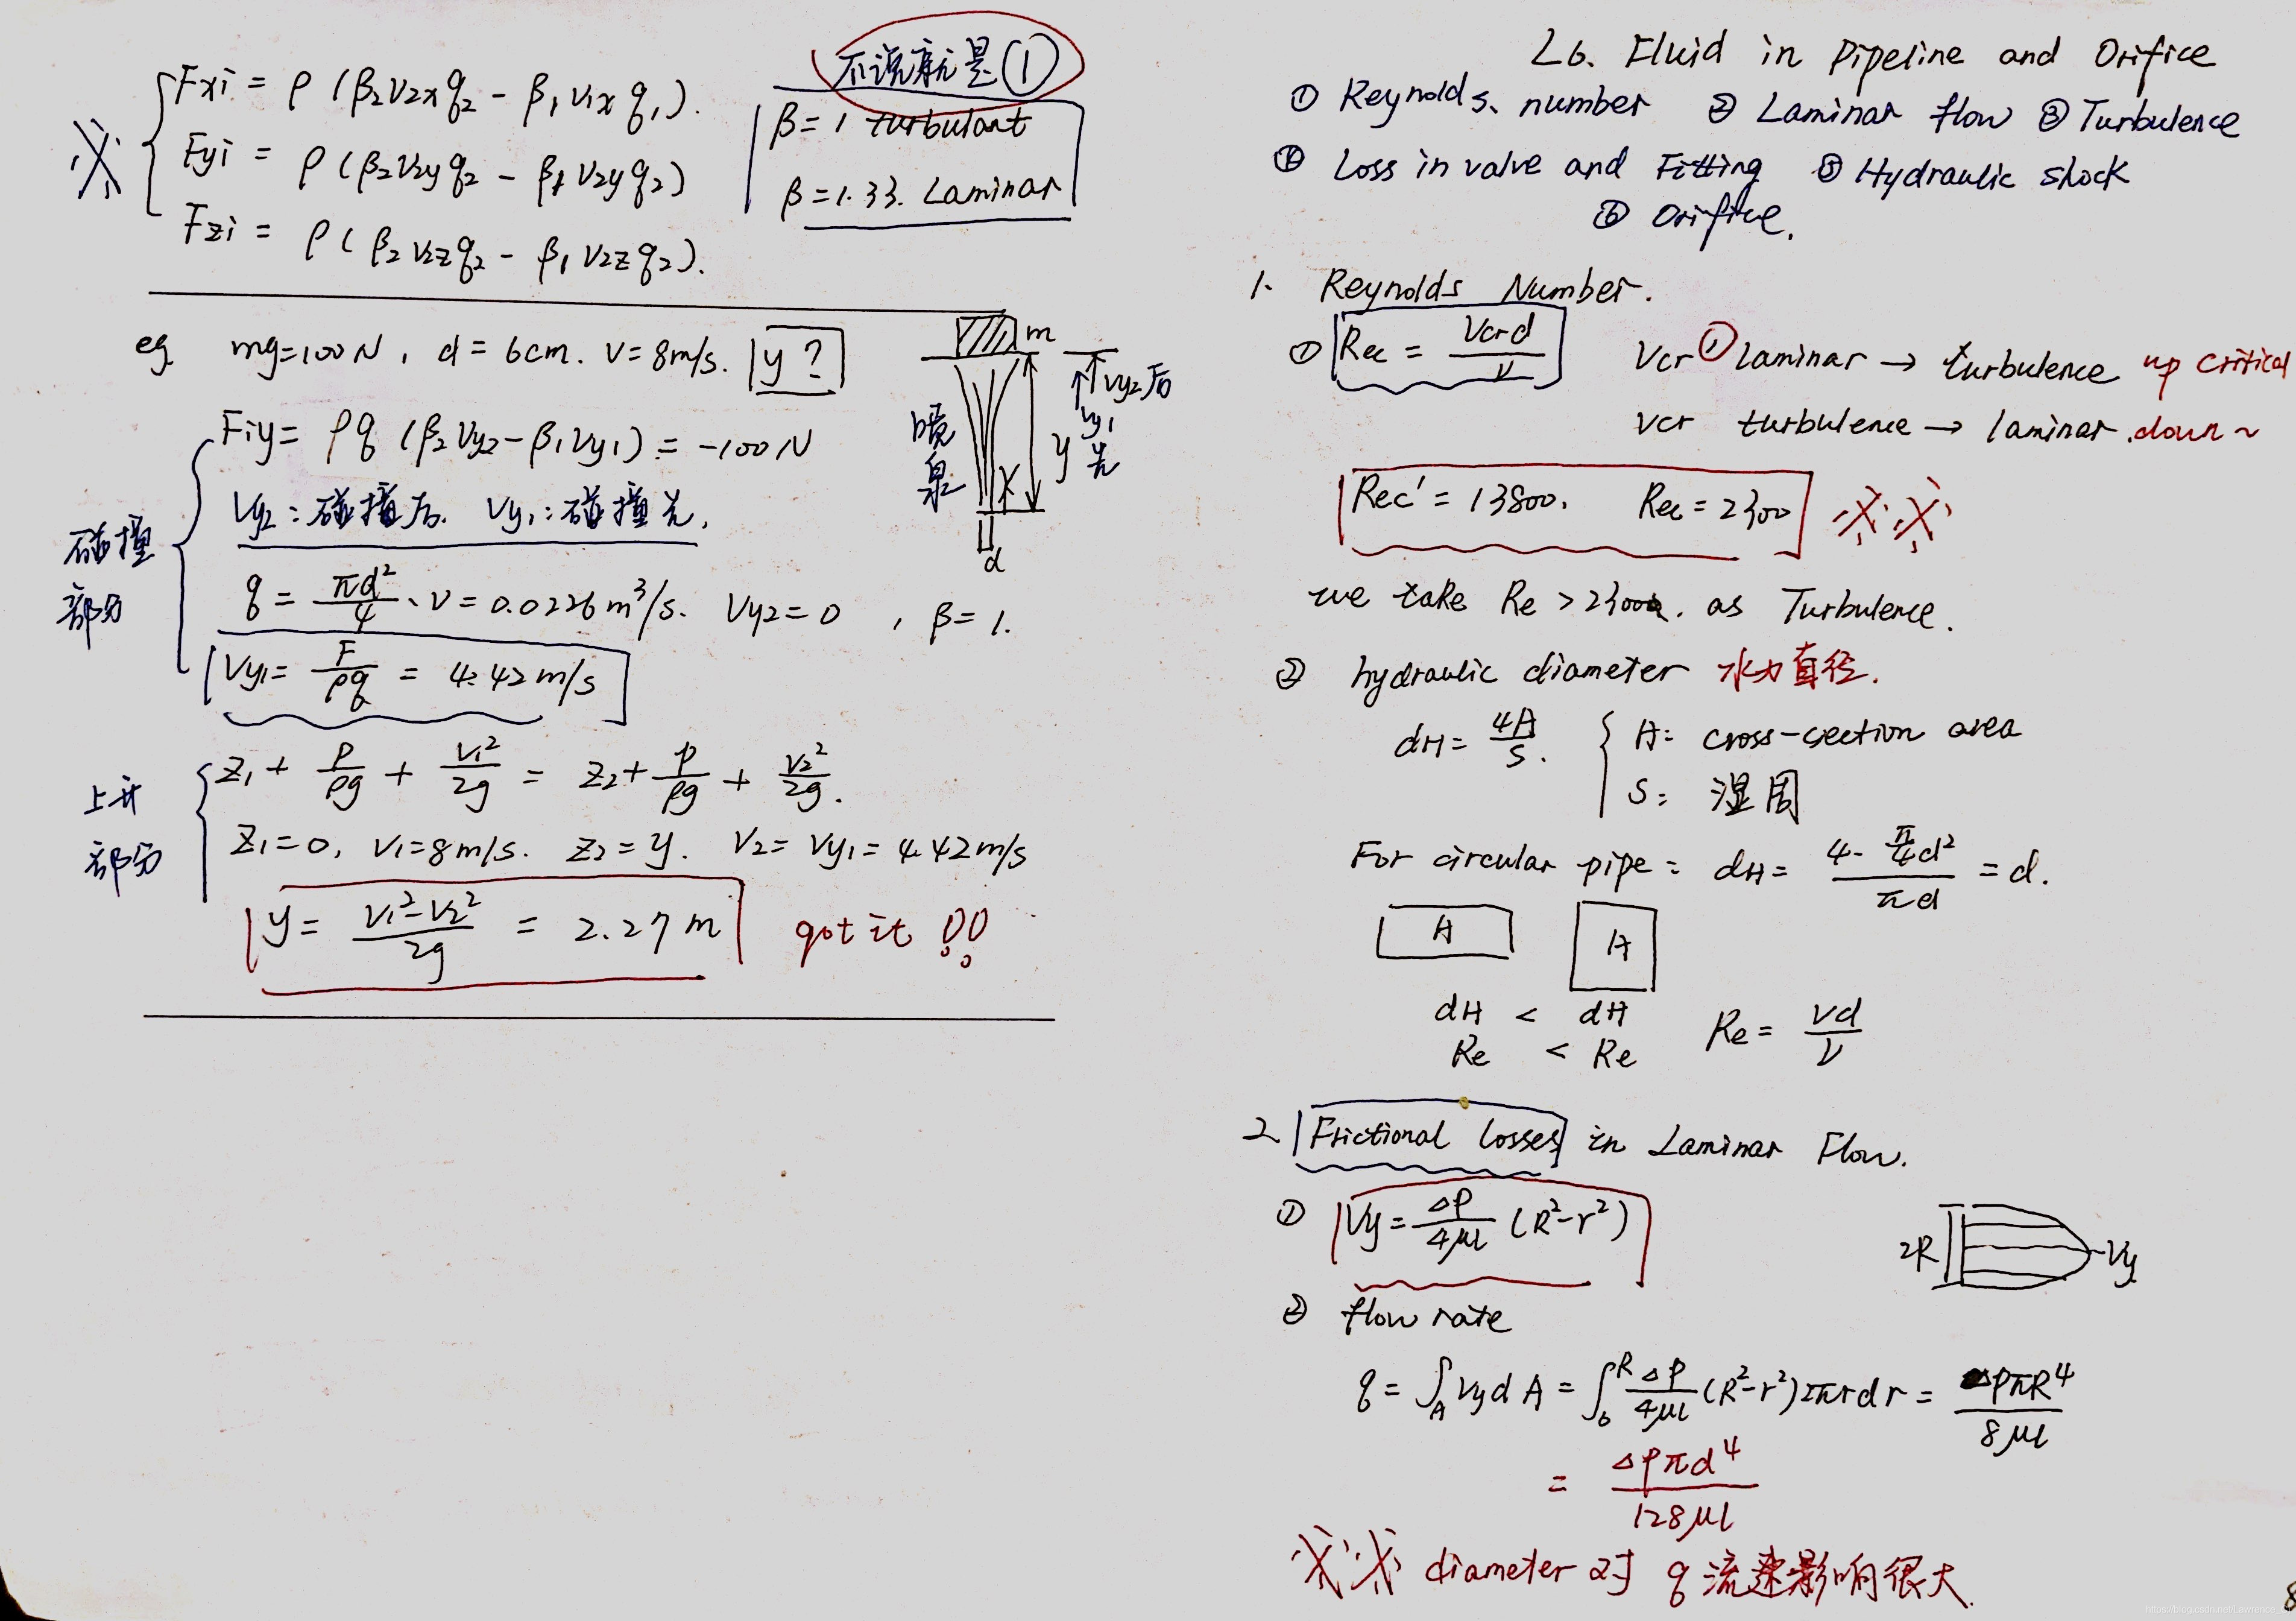 不说就是①
Fxi = ρ (β₂V₂x q₂ - β₁V₁x q₁).
Fyi = ρ (β₂V₂y q₂ - β₁V₂y q₂)
Fzi = ρ (β₂V₂z q₂ - β₁V₂z q₂).
β = 1 turbulant
β = 1.33. Laminar
eg mg=100N, d = 6cm. v = 8m/s. y ?
m
Vy2后
Vy1先
喷泉
y
d
碰撞部分
Fiy = ρq (β₂Vy2 - β₁Vy1) = -100N
Vy2: 碰撞后. Vy1: 碰撞先,
q = πd²/4 · v = 0.0226m³/s. Vy2 = 0 , β = 1.
Vy1 = F/ρq = 4.42m/s
上升部分
Z₁ + P/ρg + V₁²/2g = Z₂ + P/ρg + V₂²/2g.
Z₁=0, V₁=8m/s. Z₂=y. V₂ = Vy1 = 4.42m/s
y = (V₁²-V₂²)/2g = 2.27m got it !!
L6. Fluid in Pipeline and Orifice
① Reynolds. number ② Laminar flow ③ Turbulence
④ Loss in valve and Fitting ⑤ Hydraulic shock
⑥ Orifice.
1. Reynolds Number.
① Rec = Vcr d/ν Vcr ① laminar → turbulence up critical
vcr turbulence → laminar. down ~
Rec' = 13800. Rec = 2300
we take Re > 2300. as Turbulence.
② hydraulic diameter 水力直径.
dH = 4A/S. A: cross-section area
S: 湿周
For circular pipe: dH = (4·π/4 d²)/πd = d.
A A
dH < dH
Re < Re Re = vd/ν
2. Frictional losses in Laminar Flow.
① Vy = ΔP/4μl (R²-r²)
2R Vy
② flow rate
q = ∫_A Vy dA = ∫₀^R ΔP/4μl (R²-r²)2πr dr = ΔPπR⁴/8μl
= ΔPπd⁴/128μl
diameter 对 q 流速影响很大.
8
https://blog.csdn.net/Lawrence_